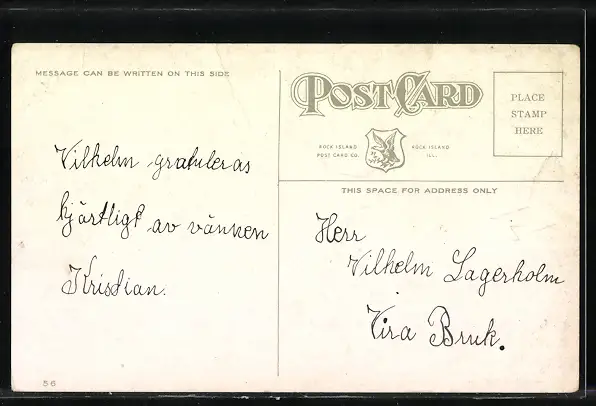 MESSAGE CAN BE WRITTEN ON THIS SIDE
Vilhelm gratuleras
hjärtligt av vännen
Kristian.
56
POST CARD
ROCK ISLAND
POST CARD CO.
ROCK ISLAND
ILL.
PLACE
STAMP
HERE
THIS SPACE FOR ADDRESS ONLY
Herr
Vilhelm Lagerholm
Vira Bruk.